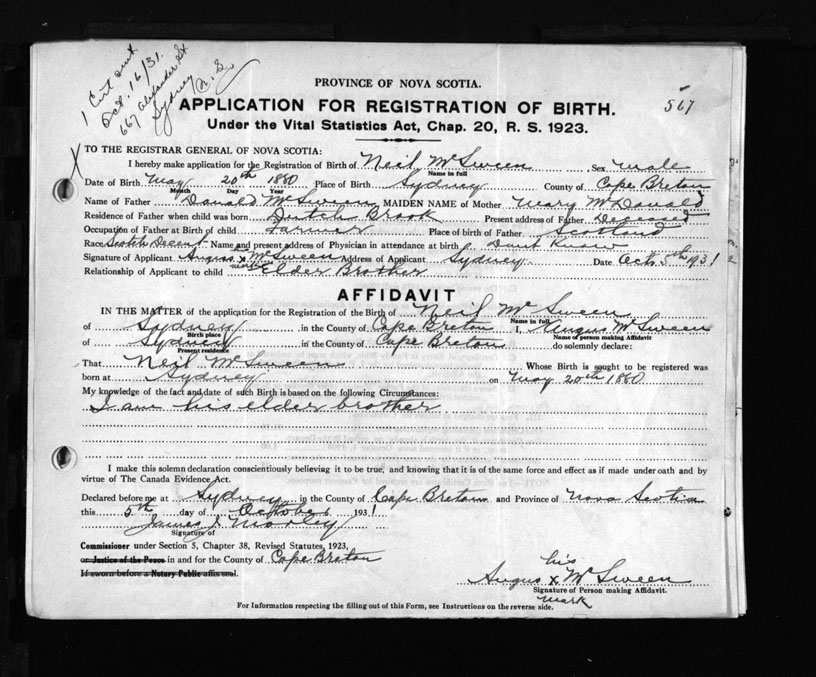 1 Cert sent
Oct. 16/31.
667 Alexander St
Sydney
N. S.
567
PROVINCE OF NOVA SCOTIA.
APPLICATION FOR REGISTRATION OF BIRTH.
Under the Vital Statistics Act, Chap. 20, R. S. 1923.
X
TO THE REGISTRAR GENERAL OF NOVA SCOTIA:
I hereby make application for the Registration of Birth of Neil McSween Sex male
Name in full
Date of Birth May 20th 1880 Place of Birth Sydney County of Cape Breton
Month Day Year
Name of Father Donald McSween MAIDEN NAME of Mother Mary McDonald
Residence of Father when child was born Dutch Brook Present address of Father Deceased
Occupation of Father at Birth of child Farmer Place of birth of Father Scotland
Race Scotch Decent Name and present address of Physician in attendance at birth Dont Know
Signature of Applicant Angus x McSween Address of Applicant Sydney Date Oct 5th 1931
Relationship of Applicant to child Elder Brother
AFFIDAVIT
IN THE MATTER of the application for the Registration of the Birth of Neil McSween
Name in full
of Sydney in the County of Cape Breton I, Angus McSween
Birth place Name of person making Affidavit
of Sydney in the County of Cape Breton do solemnly declare:
Present residence
That Neil McSween Whose Birth is sought to be registered was
born at Sydney on May 20th 1880
My knowledge of the fact and date of such Birth is based on the following Circumstances:
I am his elder brother
I make this solemn declaration conscientiously believing it to be true, and knowing that it is of the same force and effect as if made under oath and by
virtue of The Canada Evidence Act.
Declared before me at Sydney in the County of Cape Breton and Province of Nova Scotia
this 5th day of October 1931
James J. Morley
Signature of
Commissioner under Section 5, Chapter 38, Revised Statutes, 1923,
or Justice of the Peace in and for the County of Cape Breton
If sworn before a Notary Public affix seal.
his
Angus x McSween
Signature of Person making Affidavit.
mark
For Information respecting the filling out of this Form, see Instructions on the reverse side.